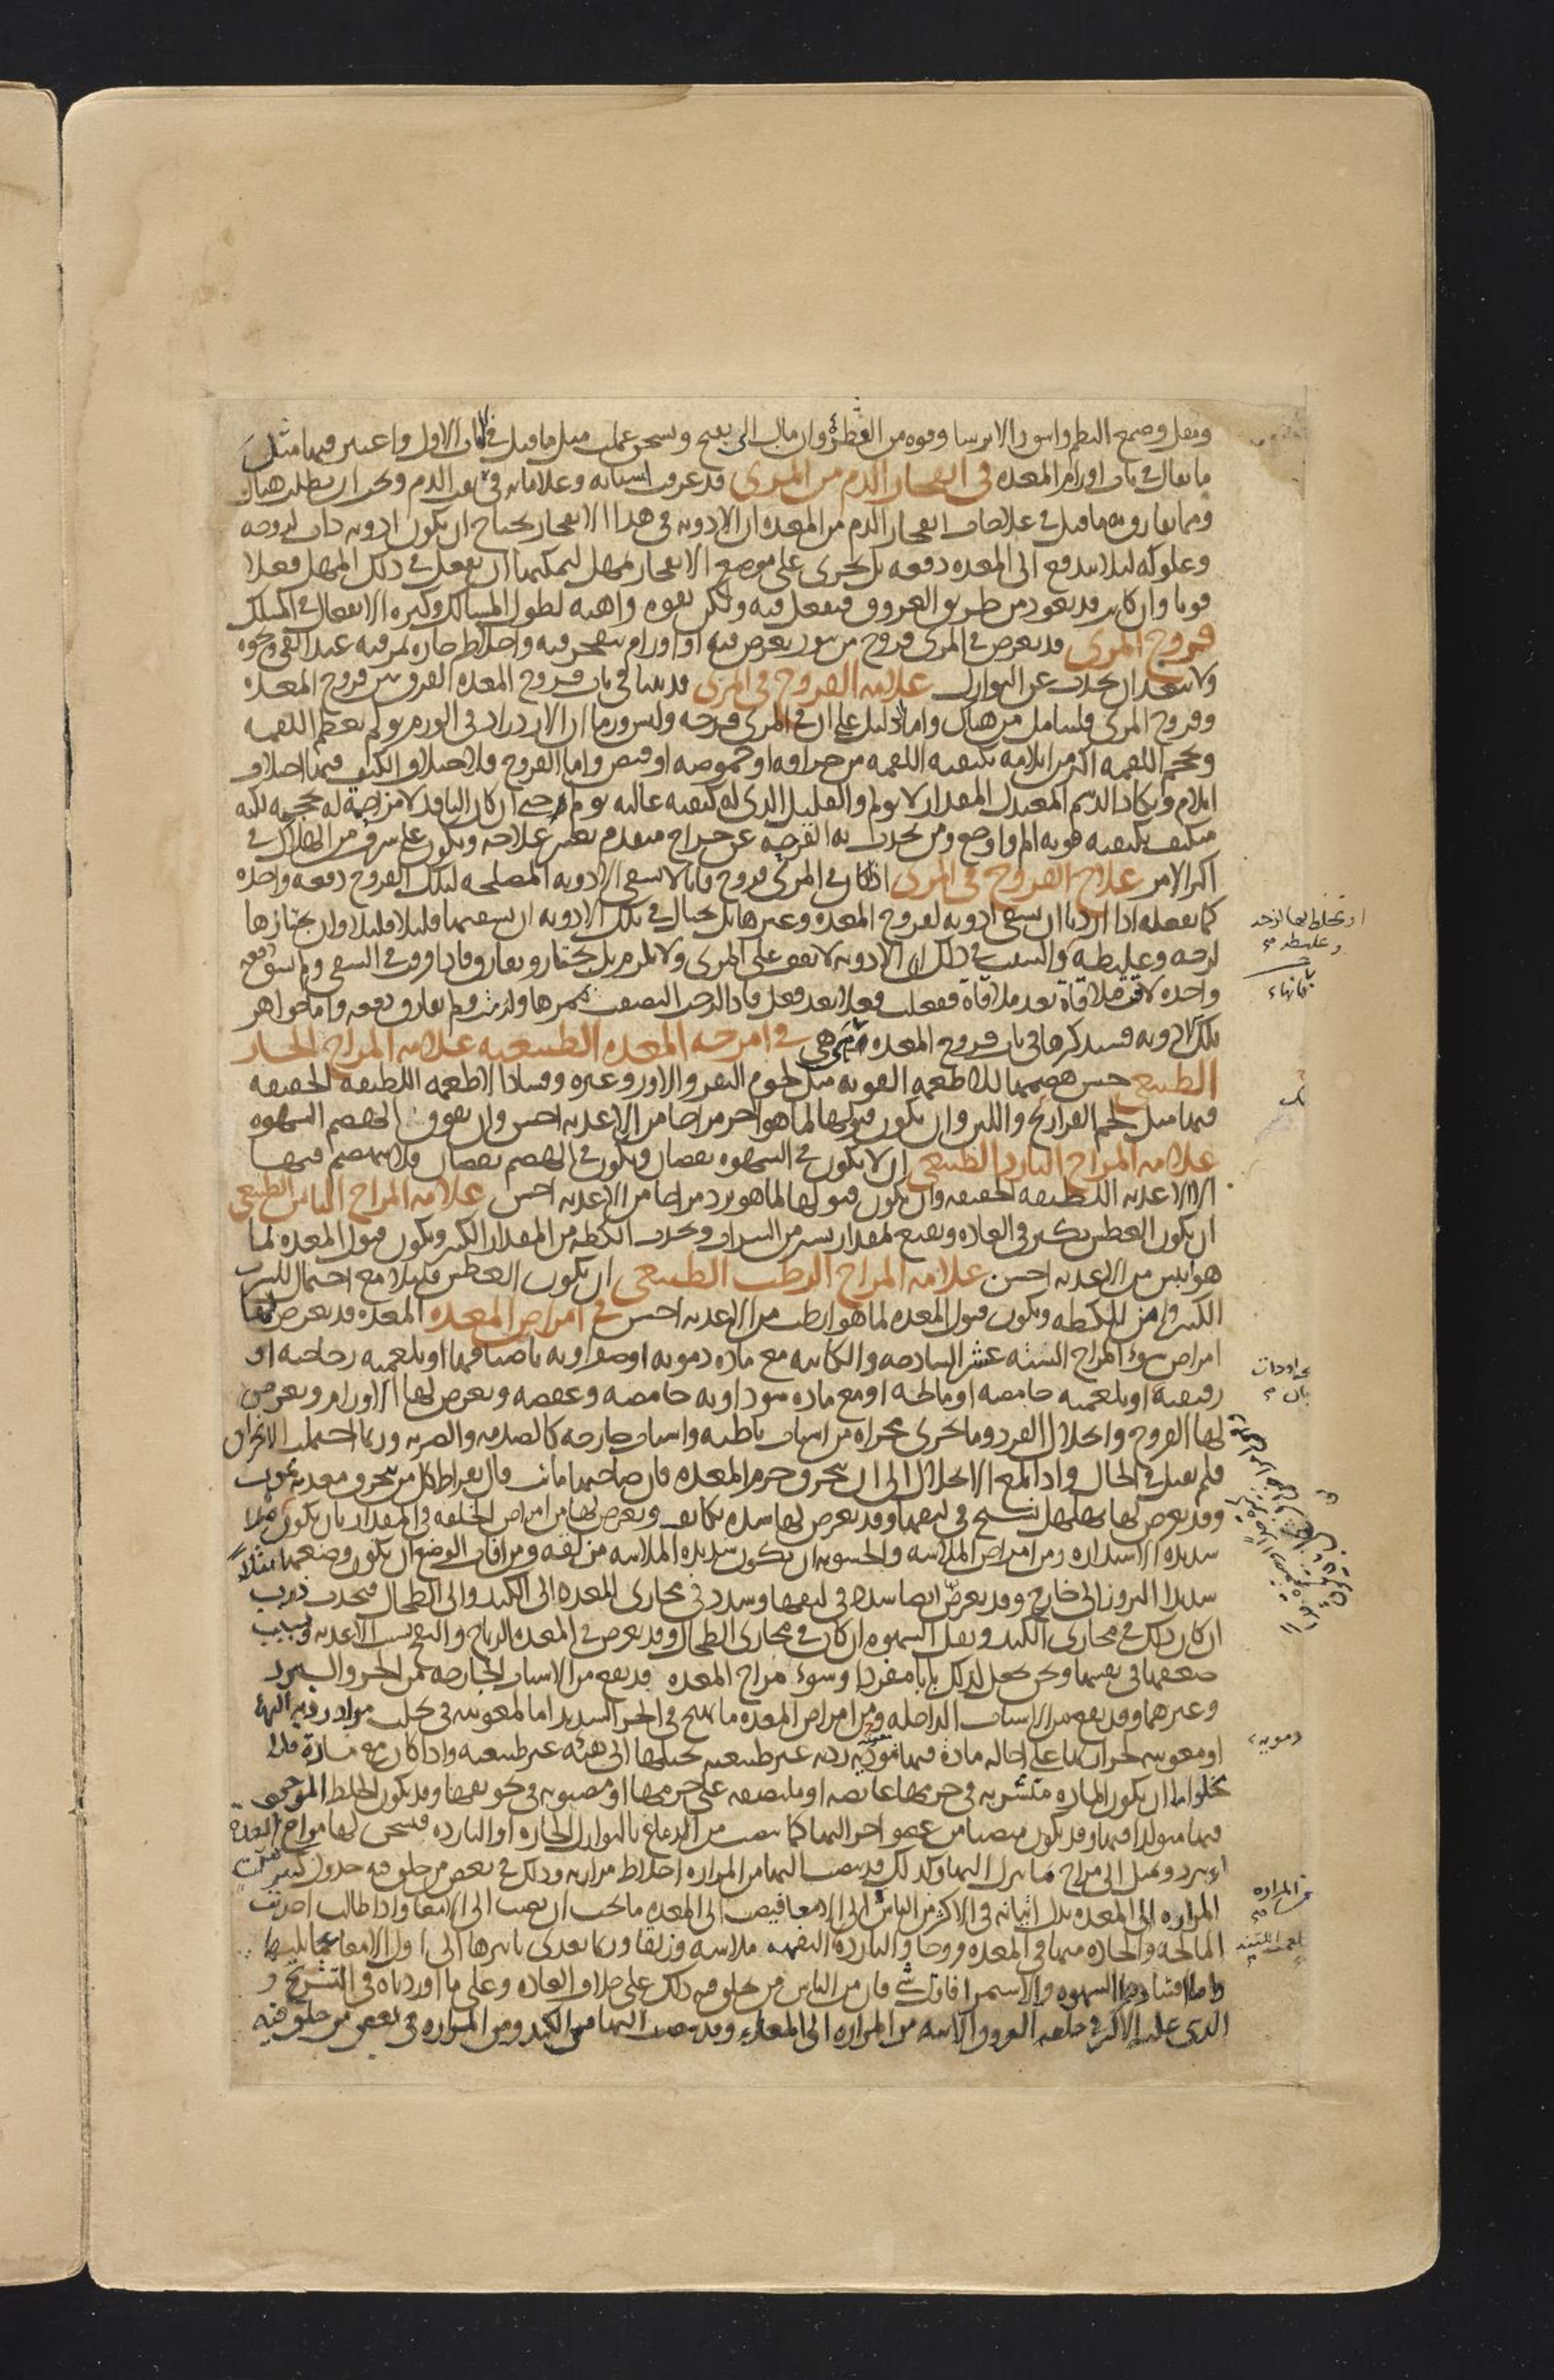 ومقل وصمغ البطم واسود الايرسا وقوه من القطر وان مال الى بقيح وسخن عملت مثل ما قيل في الباب الاول واعتبر فيها مثل
ما يقال في باب اورام المعده في انفجار الدم من المرى قد عرفت اسبابه وعلاماته في نفث الدم ونحب ان يطلب هناك
ومما يفارق به ما قيل في علاجات انفجار الدم من المعده ان الادويه في هذا الانفجار يحتاج ان يكون ادويه ذات لزوجه
وعلوكه ليلا يندفع الى المعده دفعه بل يجرى على موضع الانفجار بمهل ليمكنها ان يفعل في ذلك المهل فعلا
قويا وان كان قد يعود من طريق العروق فيفعل فيه ولكن بقوه واهيه لطول المسالك وكثره الانفعال في المسلك
قروح المرى قد يعرض في المرى قروح من بثور يعرض فيه او اورام ينفجر فيه واخلاط حاره يمر فيه عند القى ونحوه
ولا يبعد ان يحدث عن النوازل علامه القروح في المرى قد بينا في باب قروح المعده الفرق بين قروح المعده
وقروح المرى فليتامل من هناك واما الدليل على ان في المرى قرحه وليس ورما ان الازدراد في الورم يولم بعظم اللقمه
وبحجم اللقمه اكثر من ايلامه بكيفيه اللقمه من حرافه او حموضه او قبض واما القروح فلاختلاف الكيف فيها اختلاف
ايلام ويكاد الدسم المعتدل المقدار لا يولم والقليل الذى له كيفيه غاليه يولم حتى ان كان النافذ لا مزاحمه له بحجمه لكنه
متكيف بكيفيه قويه الم واوجع ومن يحدث به القرحه عن خراج متقدم يعسر علاجه ويكون على شرف من الهلاك في
اكثر الامر علاج القروح في المرى اذا كان في المرى قروح فانا لا نسقى الادويه المصلحه لتلك القروح دفعه واحده
كما نفعله اذا اردنا ان نسقى ادويه لقروح المعده وغيرها بل نحتال في تلك الادويه ان نسقيها قليلا قليلا وان نختارها
لزجه وغليظه والسبب في ذلك ان الادويه لا تقف على المرى ولا تلزم بل تجتاز وتفارق فاذا فرق في السقى ولم يسق دفعه
واحده لاقت ملاقاة بعد ملاقاة ففعلت فعلا بعد فعل فاذا لزجت التصقت بممرها ولزمت ولم تفارق دفعه واما جواهر
تلك الادويه فسنذكرها في باب قروح المعده هى في امزجه المعده الطبيعيه علامه المزاج الحار
الطبيعى حسن هضمها للاطعمه القويه مثل لحوم البقر والاوز وغيره وفساد الاطعمه اللطيفه الخفيفه
فيها مثل لحم الفراريج واللبن وان يكون قبولها لما هو احر مزاجا من الاغذيه احسن وان يفوق الهضم الشهوه
علامه المزاج البارد الطبيعى ان لا يكون في الشهوه نقصان ويكون في الهضم نقصان فلا ينهضم فيها
الا الاغذيه اللطيفه الخفيفه وان يكون قبولها لما هو برد مزاجا من الاغذيه احسن علامه المزاج اليابس الطبيعى
ان يكون العطش يكثر في العاده ويقنع بمقدار يسير من الشراب ويحدث الكظه من المقدار الكثير ويكون قبول المعده لما
هو ايبس من الاغذيه احسن علامه المزاج الرطب الطبيعى ان يكون العطش قليلا مع احتمال للشراب
الكثير وامن للكظه ويكون قبول المعده لما هو ارطب من الاغذيه احسن في امراض المعده المعده قد يعرض لها
امراض سوء المزاج الستة عشر الساذجه والكاينه مع ماده دمويه او صفراويه باصنافها او بلغميه زجاجيه او
رقيقه او بلغميه حامضه او مالحه او مع ماده سوداويه حامضه وعفصه ويعرض لها الاورام ويعرض
لها القروح وانحلال الفرد وما يجرى مجراه من اسباب باطنه واسباب خارجه كالصدمه والضربه وربما احتملت الانخراق
فلم يقتل في الحال واذا بلغ الانحلال الى ان ينخرق جرم المعده فان صاحبها مايت قال بقراط كل من ينخرق معدته يموت
وقد يعرض لها تهلهل نسج في ليفها وقد يعرض لها شده تكاثف ويعرض لها من امراض الخلقه في المقدار بان يكون مثلا
شديده الاستداره ومن امراض الملاسه والخشونه ان يكون شديده الملاسه مزلقه ومن افات الوضع ان يكون وضعها مثلا
شديد البروز الى خارج وقد يعرض ايضا سده في ليفها وسدد في مجارى المعده الى الكبد والى الطحال فيحدث ذرب
ان كان ذلك في مجارى الكبد ويقل الشهوه ان كان في مجارى الطحال وقد يعرض في المعده الرياح والنفخ بسبب الاغذيه وبسبب
ضعفها في نفسها ونحن نجعل لذلك بابا مفردا وسوء مزاج المعده قد يقع من الاسباب الخارجه من الحر والبرد
وغيرهما وقد يقع من الاسباب الداخله ومن امراض المعده ما يهيج في الحر الشديد اما لمعونته في تحلب مواد رديه اليها
او معونه حرارتها على احاله ماده فيها رديه غير طبيعيه يحيلها الى هيئه غير طبيعيه واذا كان مع مادة فلا
يخلوا اما ان يكون الماده متشربه في جرمها غايصه او ملتصقه على جرمها او مصبوبه في تجويفها وقد يكون الخلط الموجود
فيها متولدا فيها وقد يكون منصبا من عضو اخر اليها كما ينصب من الدماغ بالنوازل الحاره او البارده فيسخن لها مزاج المعدة
او يبرد ويميل الى مزاج ما ينزل اليها وكذلك قد ينصب اليها من المراره اخلاط مراريه وذلك في بعض من خلق فيه جدول كبير من
المراره الى المعده بدل اتيانه في الاكثر من الناس الى الامعا فيصب الى المعده ما يجب ان يصب الى الامعا واذا طالت اضرت
المالحه والحاده منها في المعده قروحا والبارده التفهه ملاسه وزلقا وربما تعدى تاثيرها الى اول الامعا وما يليها
واما افساد الشهوه والاستمرا فاول شئ فان من الناس من خلق فيه ذلك على خلاف العاده وعلى ما اوردناه في التشريح و
الذى عليه الاكثر في خلقه العروق الاتيه من المراره الى المعده وقد ينصب اليها من الكبد ومن المراره في بعض من خلق فيه
او تخلط بها لزجه
وغليظه
دمويه